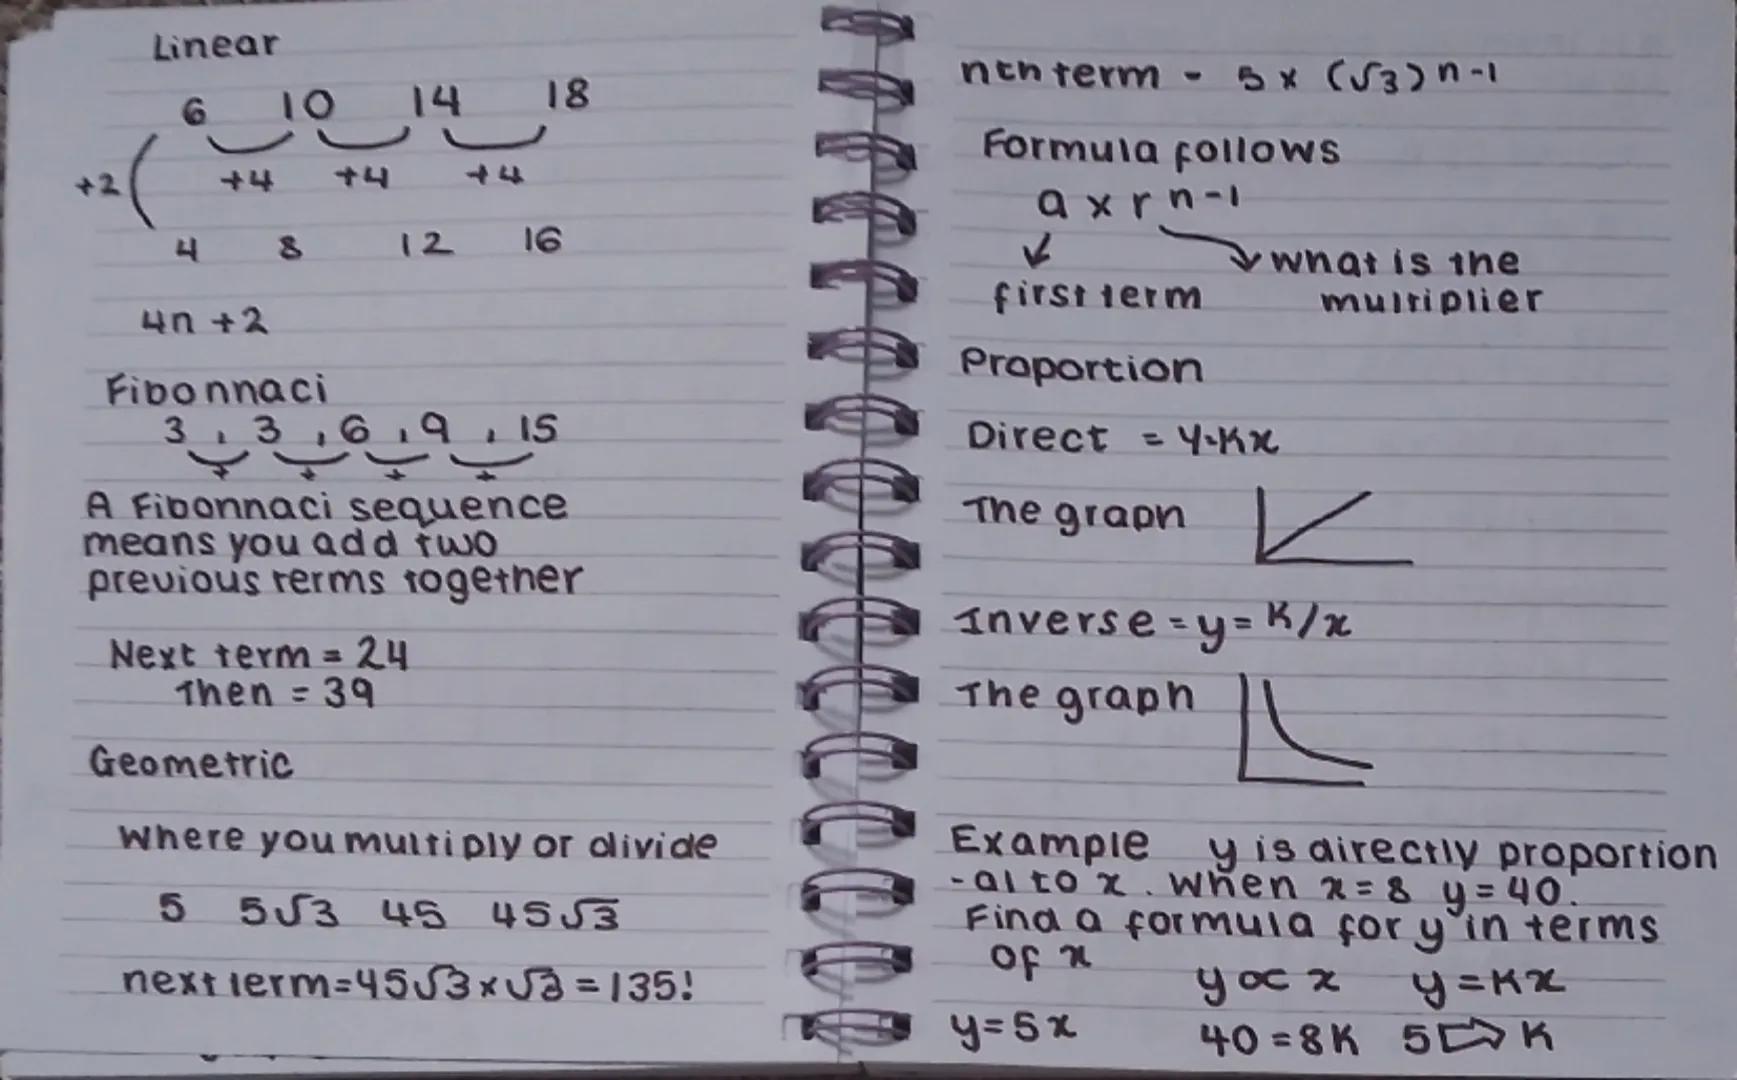 Linear
6 10 14 18
+2 +4 +4 +4
4 8 12 16
4n +2
Fibonnaci
3 , 3 , 6 , 9 , 15
+ + + +
A Fibonnaci sequence
means you add two
previous terms together
Next term = 24
Then = 39
Geometric
Where you multiply or divide
5 5√3 45 45√3
next term = 45√3 × √3 = 135!
nth term - 5 × (√3) n-1
Formula follows
a × r n-1
what is the
first term multiplier
Proportion
Direct = y=kx
The graph
Inverse = y = K/x
The graph
Example y is directly proportion
-al to x. When x = 8 y = 40.
Find a formula for y in terms
of x
y ∝ x y = Kx
y = 5x 40 = 8K 5 ⇨ K